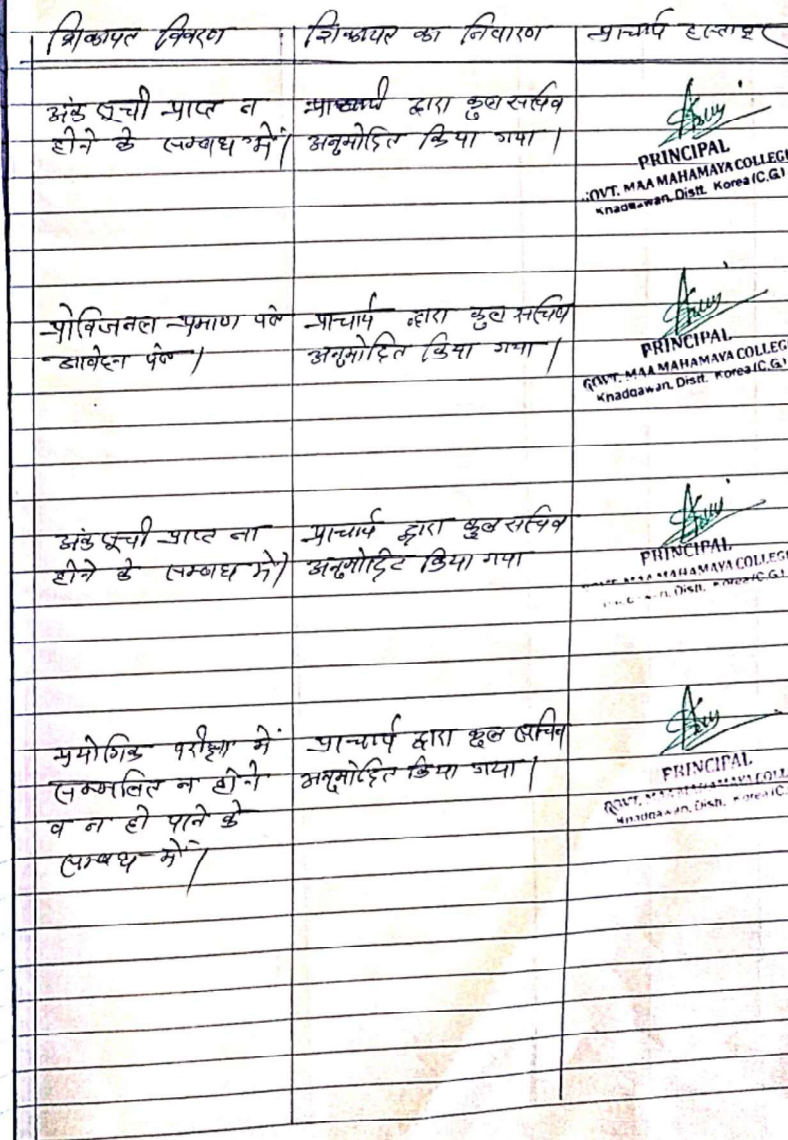 शिकायत विवरण शिकायत का निवारण प्राचार्य हस्ताक्षर
अंक सूची प्राप्त न
होने के सम्बंध में|
प्राचार्य द्वारा कुल सचिव
अनुमोदित किया गया |
PRINCIPAL
GOVT. MAA MAHAMAYA COLLEGE
Khadgawan, Distt. Korea (C.G.)
प्रोविजनल प्रमाण पत्र
आवेदन पत्र |
प्राचार्य द्वारा कुल सचिव
अनुमोदित किया गया |
PRINCIPAL
GOVT. MAA MAHAMAYA COLLEGE
Khadgawan, Distt. Korea (C.G.)
अंक सूची प्राप्त ना
होने के सम्बंध में|
प्राचार्य द्वारा कुल सचिव
अनुमोदित किया गया
PRINCIPAL
MAHAMAYA COLLEGE
Distt. Korea (C.G.)
प्रयोगिक परीक्षा में
सम्मलित न होने
व न हो पाने के
सम्बंध में|
प्राचार्य द्वारा कुल सचिव
अनुमोदित किया गया |
PRINCIPAL
GOVT.
Khadgawan, Distt. Korea (C.